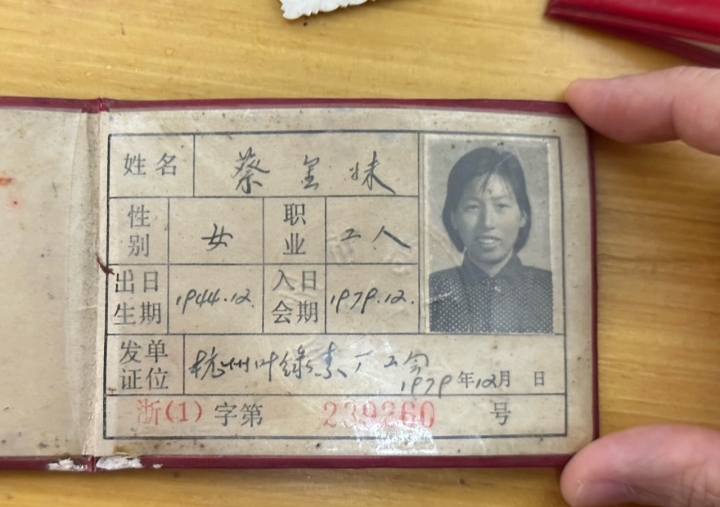 姓名 蔡金妹
性别 女 职业 工人
出生日期 1944.12. 入会日期 1979.12.
发证单位 杭州叶绿素厂工会
1979年12月 日
浙(1)字第 239260 号